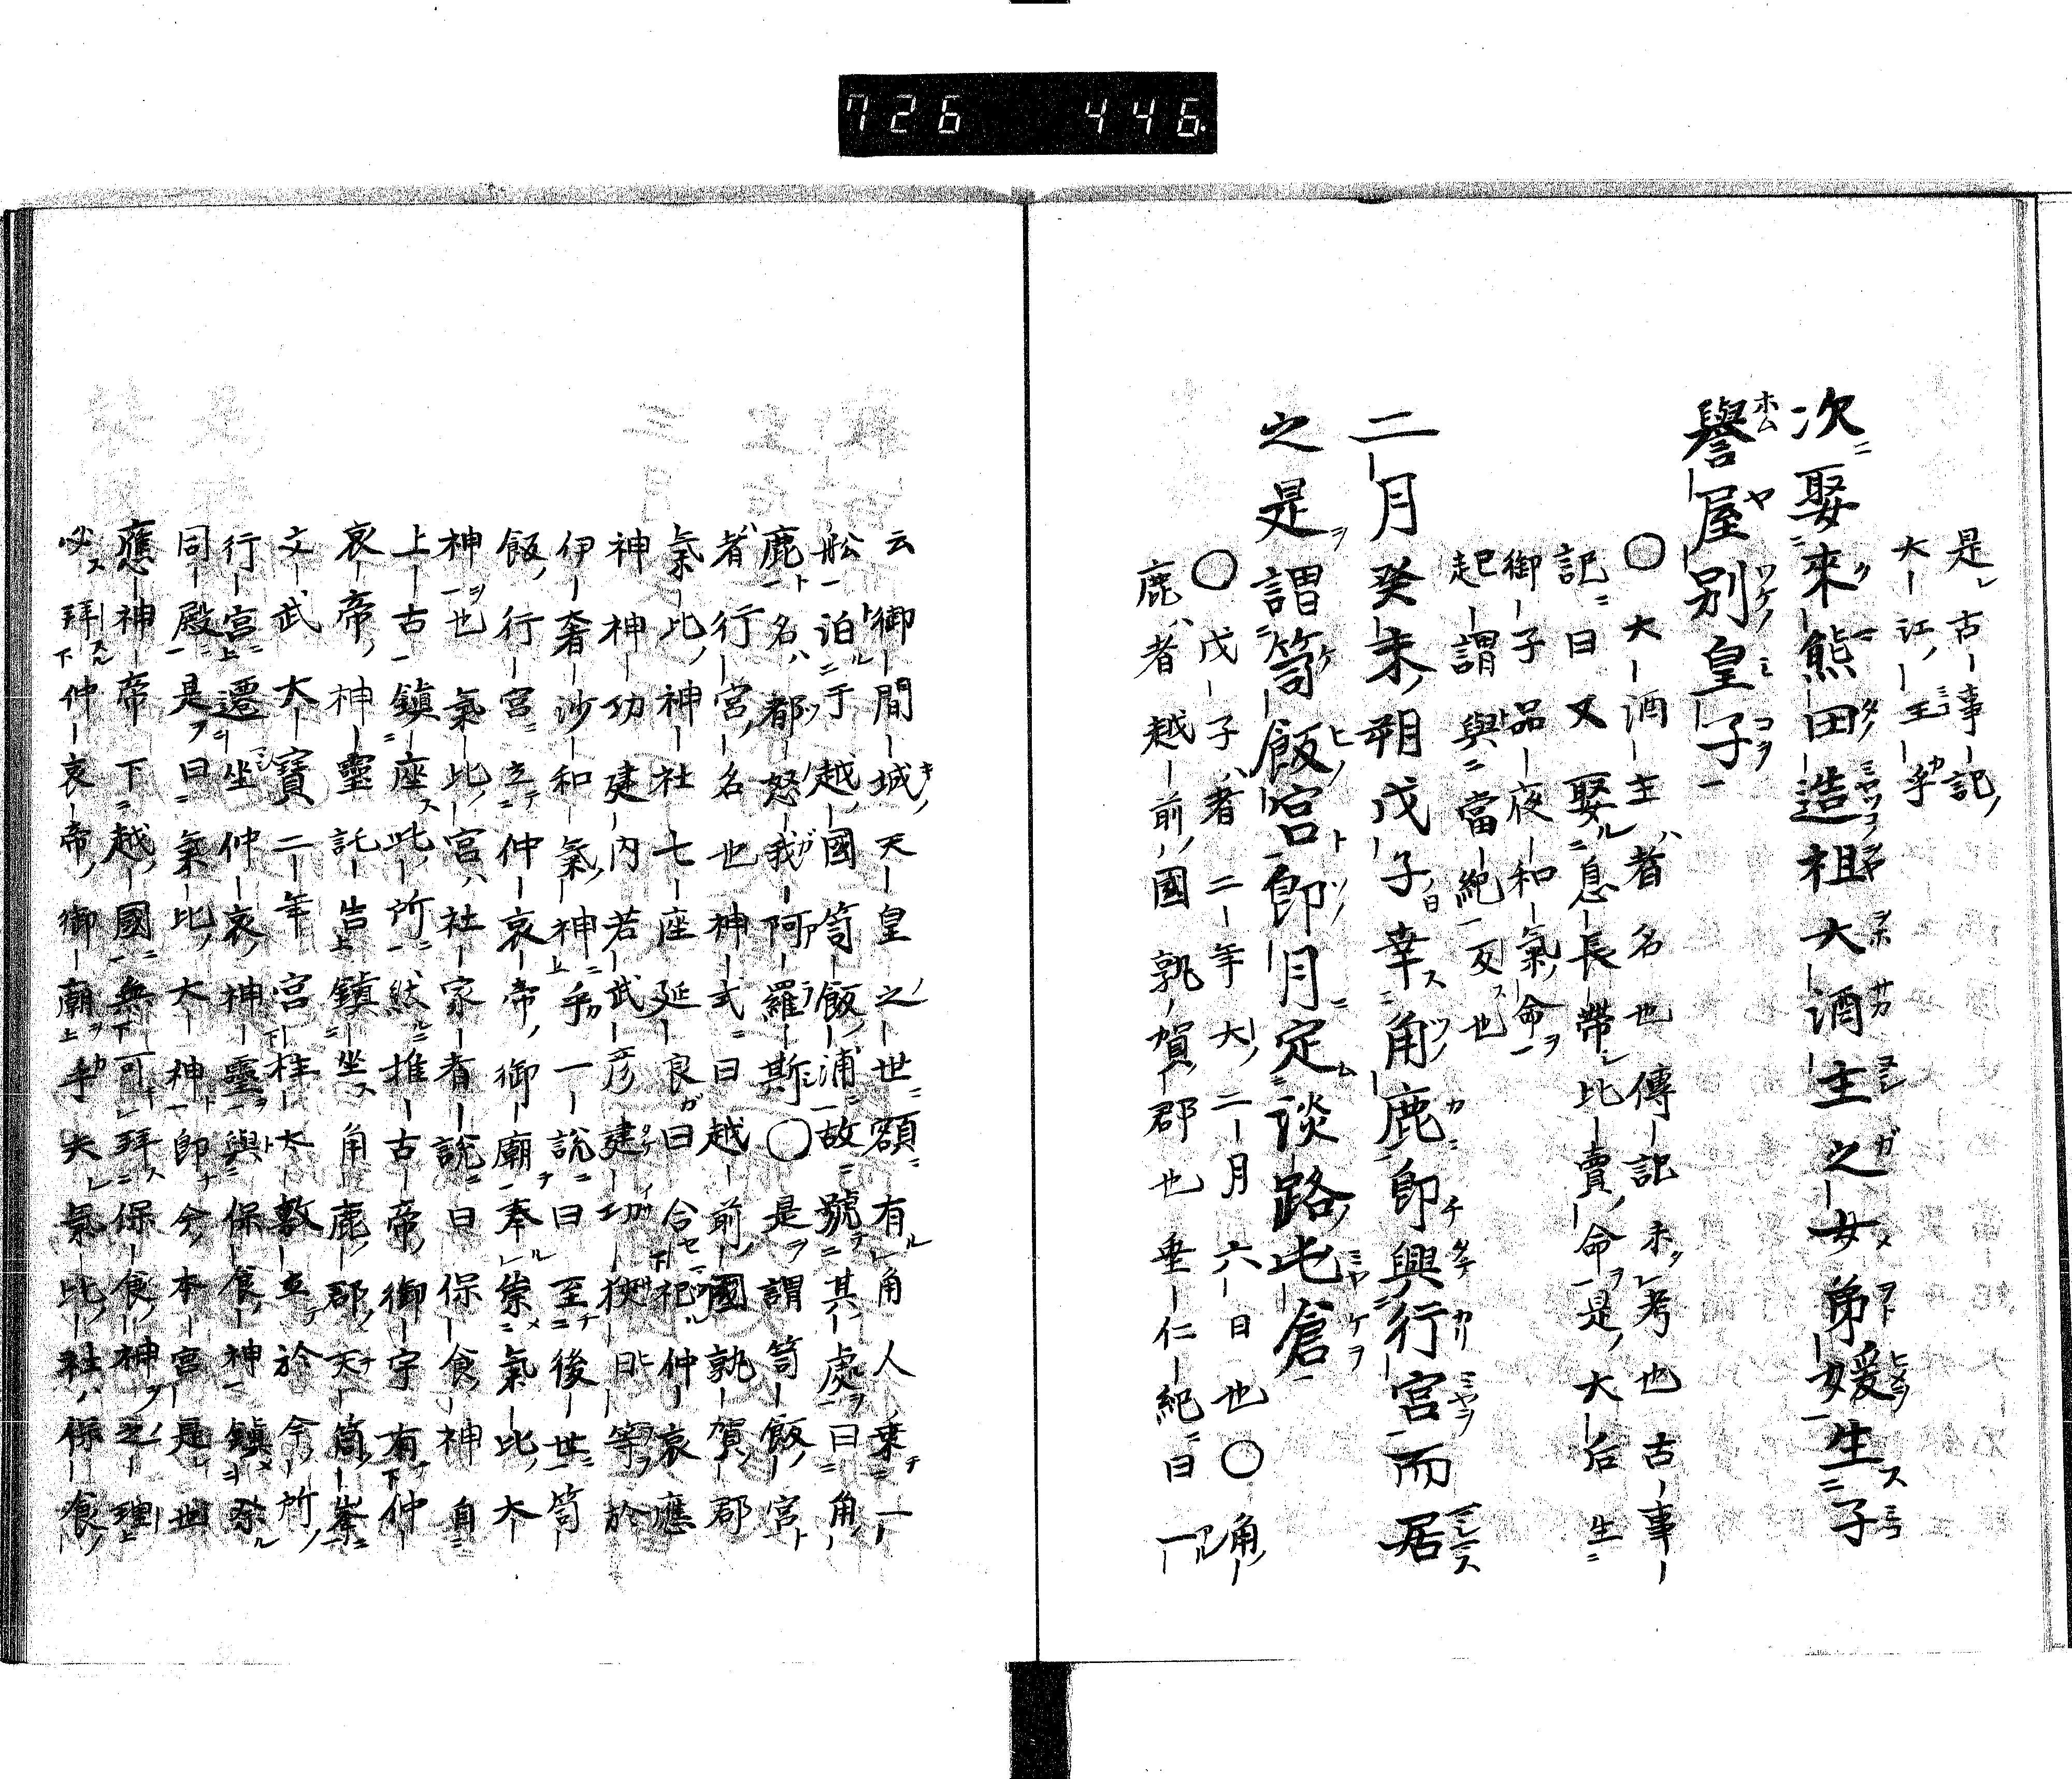 726 446.
是古事記
大江王乎
次娶來熊田造祖大酒主之女弟媛生子
譽屋別皇子
〇大酒主者名也傳記未考也古事
記曰又娶息長帶比賣命是大后生
御子品夜和氣命
起謂與當絶反也
二月癸未朔戊子幸角鹿即興行宮而居
之是謂笥飯宮即月定淡路屯倉
〇戊子者二年大二月六日也〇角
鹿者越前國敦賀郡也垂仁紀曰一
云御間城天皇之世額有角人乗一
舩泊于越國笥飯浦故號其處曰角
鹿名都怒我阿羅斯〇是謂笥飯宮
者行宮名也神式曰越前國敦賀郡
氣比神社七座延良曰合祀仲哀應
神神功建内若武彦建功狹日等於
伊奢沙和氣神乎一説曰至後世笥
飯行宮立仲哀帝御廟奉崇氣比大
神也氣比宮社家者説曰保食神自
上古鎮座此所然推古帝御宇有仲
哀帝神靈託告鎮坐角鹿郡天筒峯
文武大寶二年宮柱太敷立於今所
行宮遷坐仲哀神靈與保食神鎮祭
同殿是曰氣比大神即今本宮是也
應神帝下越國無可拜保食神之理
必拜仲哀帝御廟乎夫氣比社保食